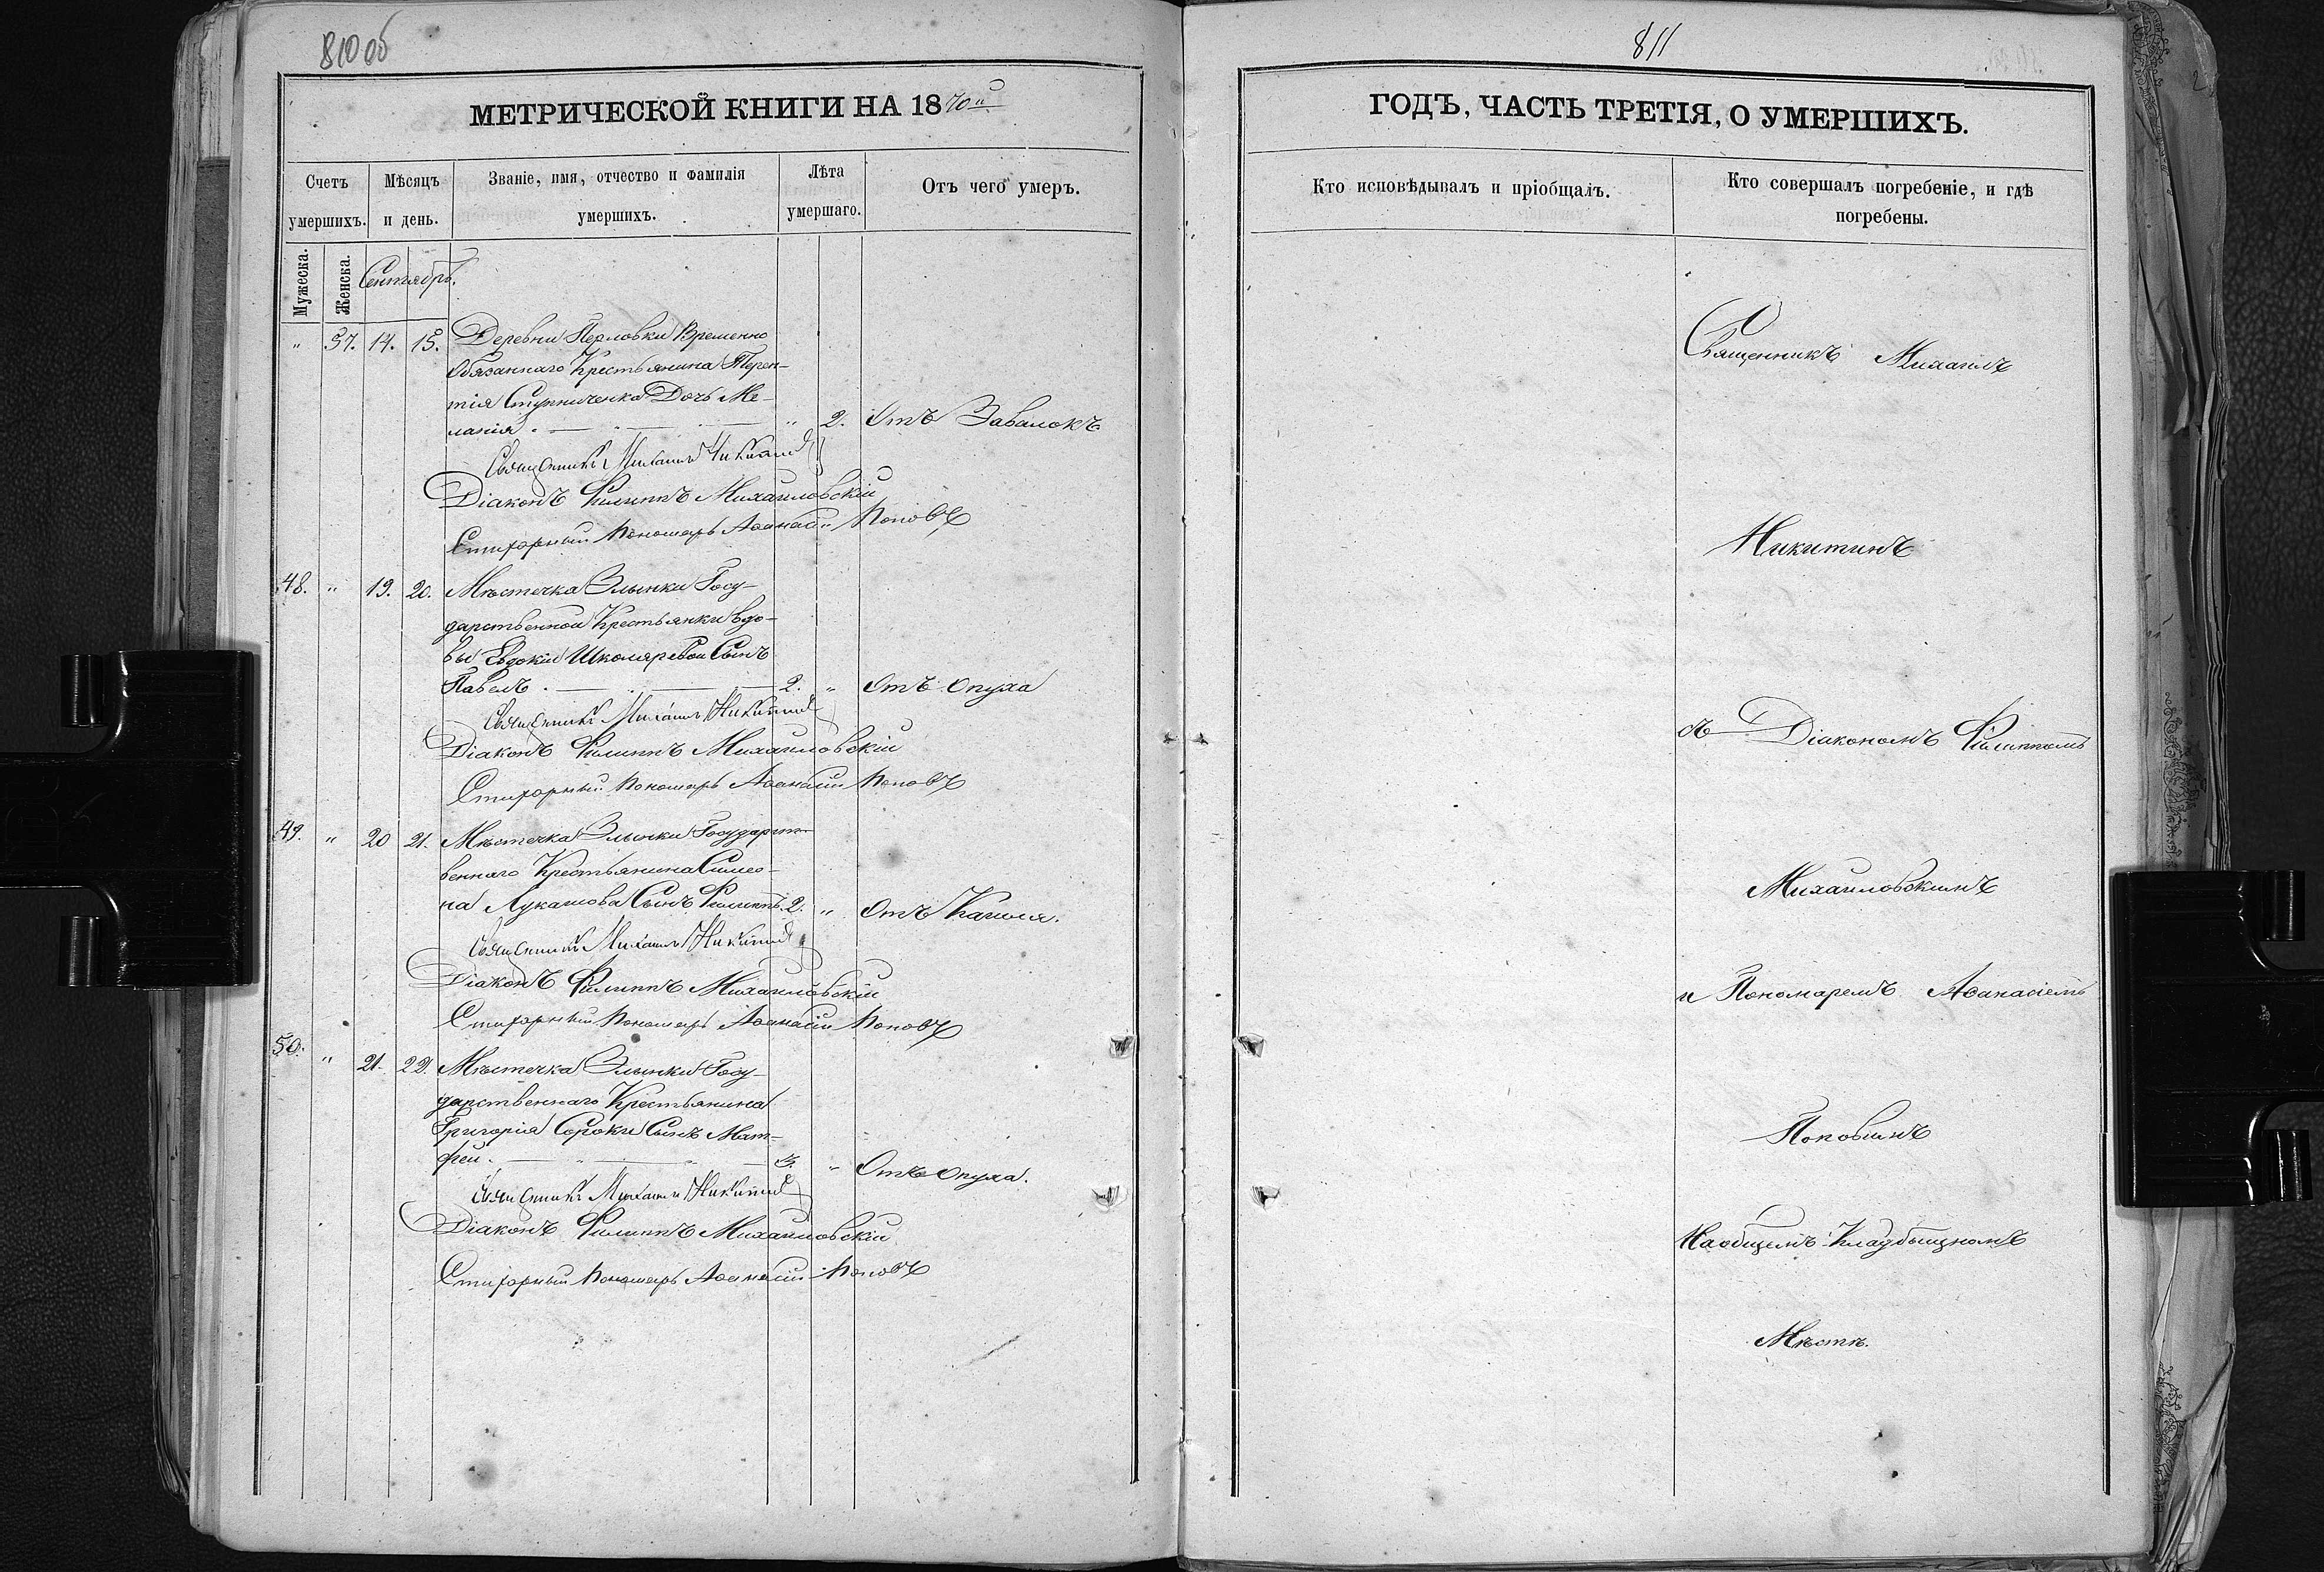 810 об
МЕТРИЧЕСКОЙ КНИГИ НА 1870й
Счетъ умершихъ.
Мѣсяцъ и день.
Званіе, имя, отчество и фамилія умершихъ.
Лѣта умершаго.
Отъ чего умеръ.
Мужеска.
Женска.
Сентябрь.
" 37. 14. 15. Деревни Перловки Временно
Обязаннаго Крестьянина Терен-
тія Ступниченка Дочь Ме-
ланія. " 2. Отъ Завалокъ
Священникъ Михаилъ Никитинъ
Діаконъ Филиппъ Михайловскій
Стихарный Пономарь Аѳанасій Поповъ
48. " 19. 20. Мѣстечка Злынки Госу-
дарственной Крестьянки вдо-
вы Евдокіи Школяревой Сынъ
Павелъ. 2. " Отъ Опуха
Священникъ Михаилъ Никитинъ
Діаконъ Филиппъ Михайловскій
Стихарный Пономарь Аѳанасій Поповъ
49. " 20 21. Мѣстечка Злынки Государст-
веннаго Крестьянина Симео-
на Лукашова Сынъ Филиппъ. 2. " Отъ Кашля.
Священникъ Михаилъ Никитинъ
Діаконъ Филиппъ Михайловскій
Стихарный Пономарь Аѳанасій Поповъ
50. " 21. 22. Мѣстечка Злынки Госу-
дарственнаго Крестьянина
Григорія Сороки Сынъ Мат-
фей. 3. " Отъ Опуха.
Священникъ Михаилъ Никитинъ
Діаконъ Филиппъ Михайловскій
Стихарный Пономарь Аѳанасій Поповъ
811
ГОДЪ, ЧАСТЬ ТРЕТІЯ, О УМЕРШИХЪ.
Кто исповѣдывалъ и пріобщалъ.
Кто совершалъ погребеніе, и гдѣ
погребены.
Священникъ Михаилъ
Никитинъ
съ Діакономъ Филиппомъ
Михайловскимъ
и Пономаремъ Аѳанасіемъ
Поповымъ
На общемъ Кладбищномъ
Мѣстѣ.